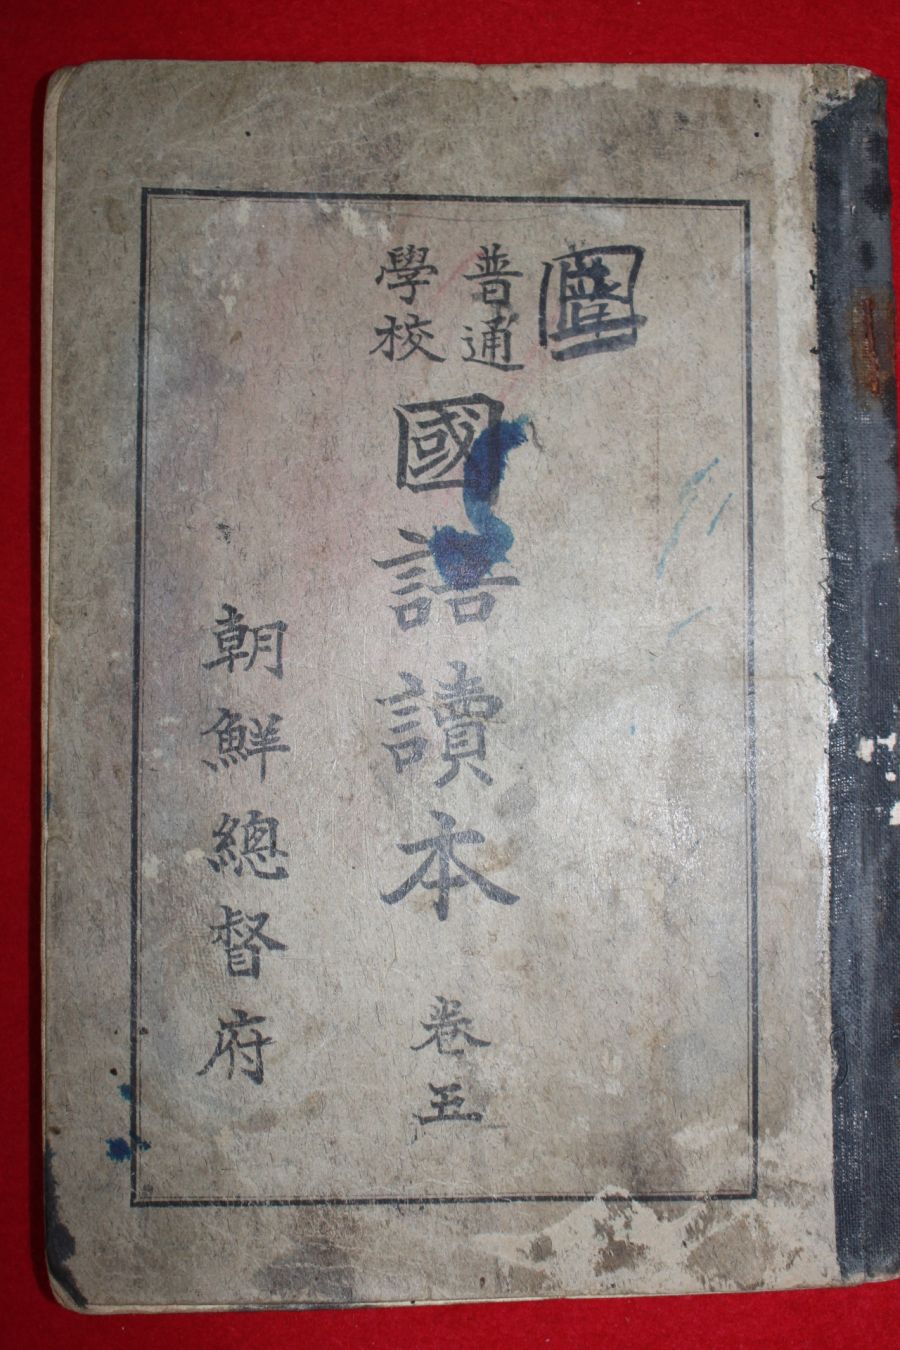 普通
學校
國語讀本 卷五
朝鮮總督府